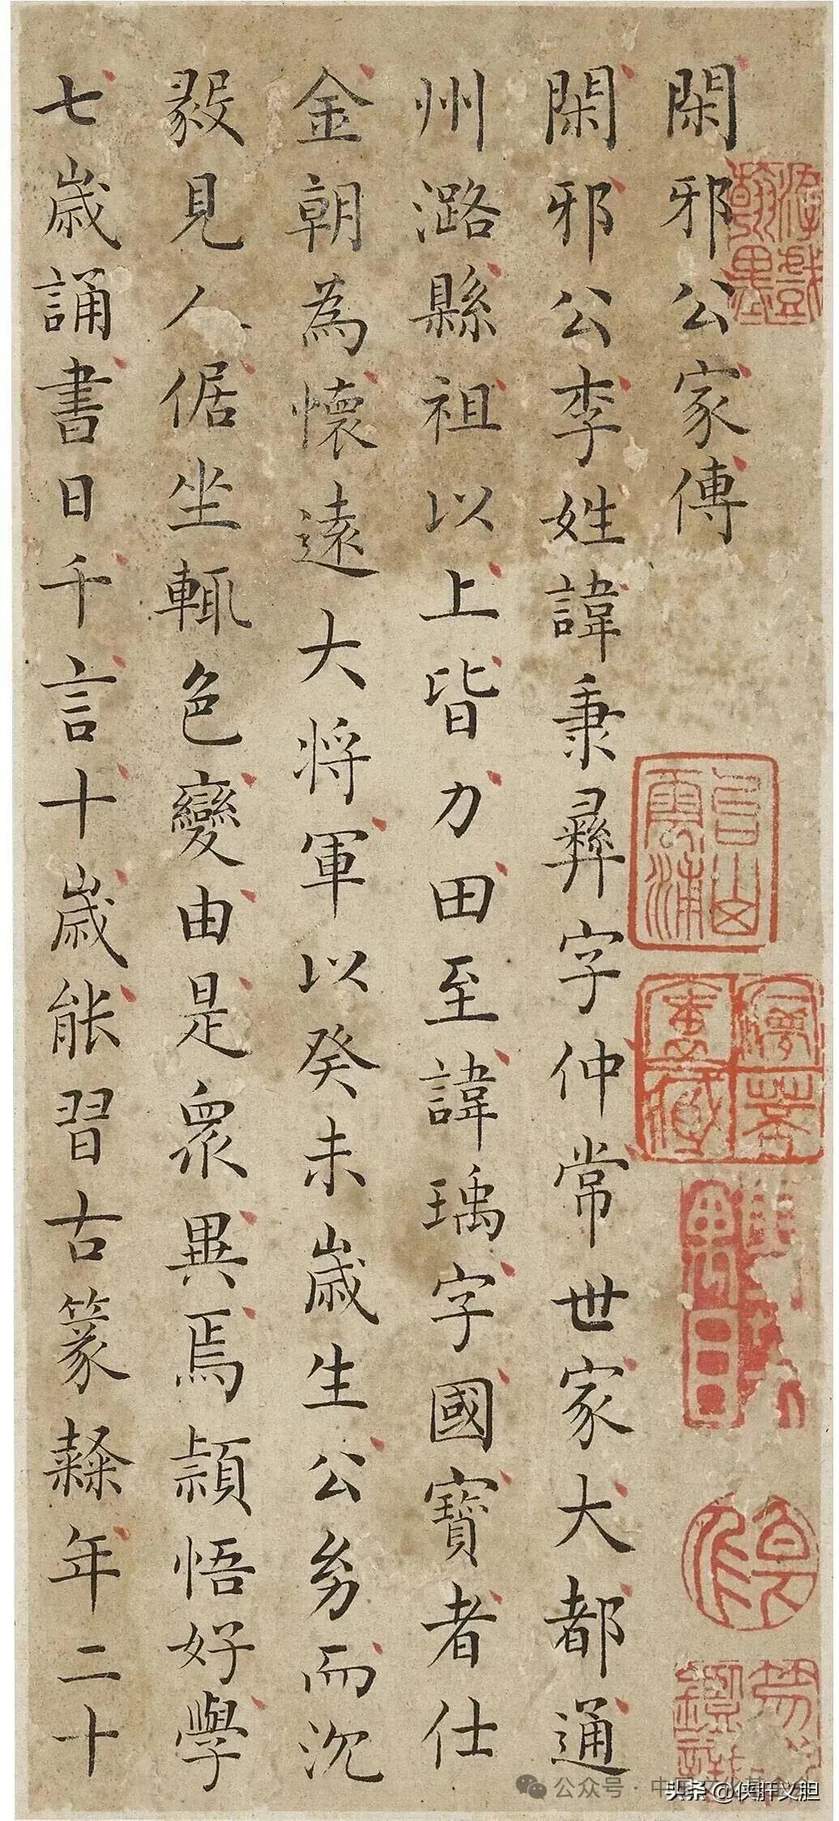 閑邪公家傳
閑邪公李姓諱秉彝字仲常世家大都通
州潞縣祖以上皆力田至諱瑀字國寶者仕
金朝為懷遠大將軍以癸未歲生公幼而沉
毅見人倨坐輒色變由是眾異焉穎悟好學
七歲誦書日千言十歲能習古篆隸年二十
公众号·中国文化
头条 @侠肝义胆